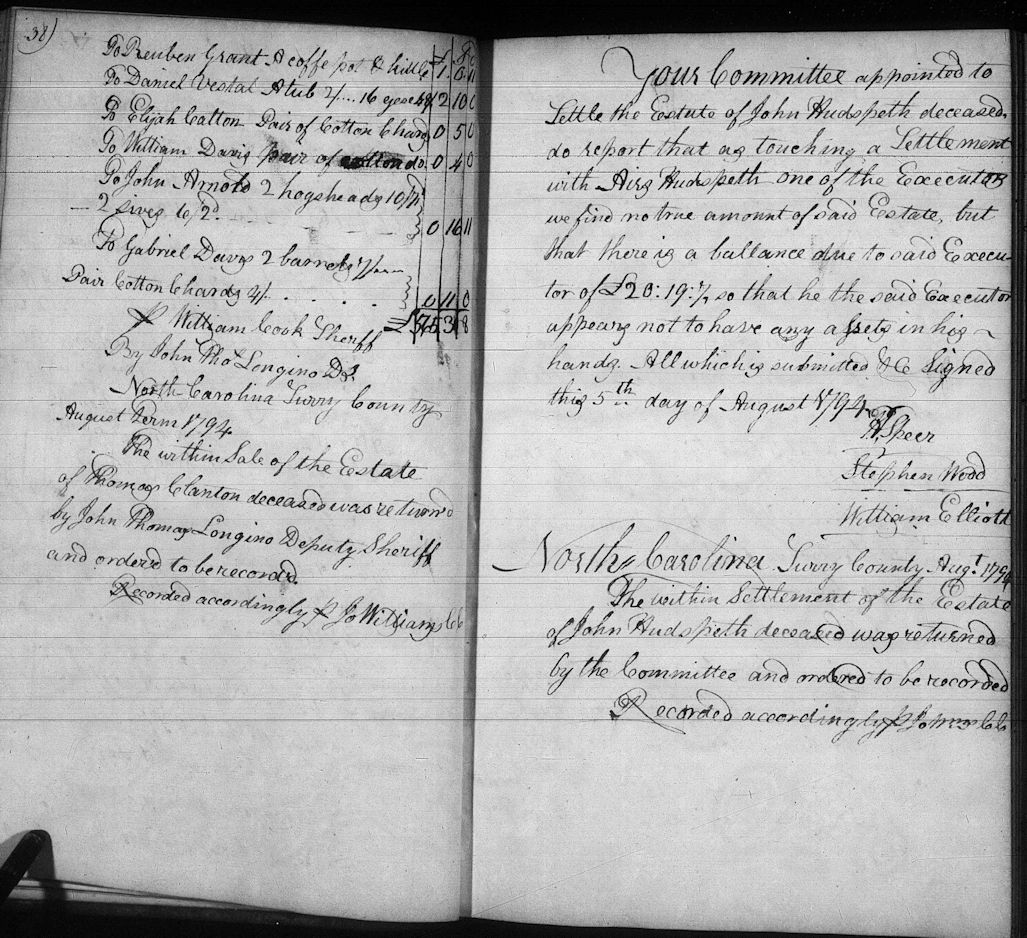 38)
To Reuben Grant A coffe pot & kittle 1 0 11
To Daniel Vestal A tub 2/.... 16 geese 48/ 2 10 0
To Elijah Catton Pair of Cotton Chards 0 5 0
To William Davis pair of cotton do. 0 4 0
To John Arnold 2 hogsheads 10/11
2 sives 6/ 2d. 0 16 11
To Gabriel Davis 2 barrels 7/
Pair Cotton Chards 4/ 0 11 0
P William Cook Sheriff
By John Thos Longino D.S.
North Carolina Surry County
August Term 1794
The within Sale of the Estate
of Thomas Clanton deceased was return'd
by John Thomas Longino Deputy Sheriff
and order'd to be record'd.
Recorded accordingly P Jo Williams CC
Your Committee appointed to
Settle the Estate of John Hudspeth deceased
do report that as touching a Settlement
with Airs Hudspeth one of the Executors
we find no true amount of said Estate, but
that there is a ballance due to said Execu-
tor of £20:19:7½ so that he the said Executor
appears not to have any assets in his
hands. All which is submitted &C Signed
this 5th day of August 1794
A, Speer
Stephen Wood
William Elliott
North Carolina Surry County Augt. 1794
The within Settlement of the Estate
of John Hudspeth deceased was returned
by the Committee and ordered to be recorded
Recorded accordingly P Jo Wms CC